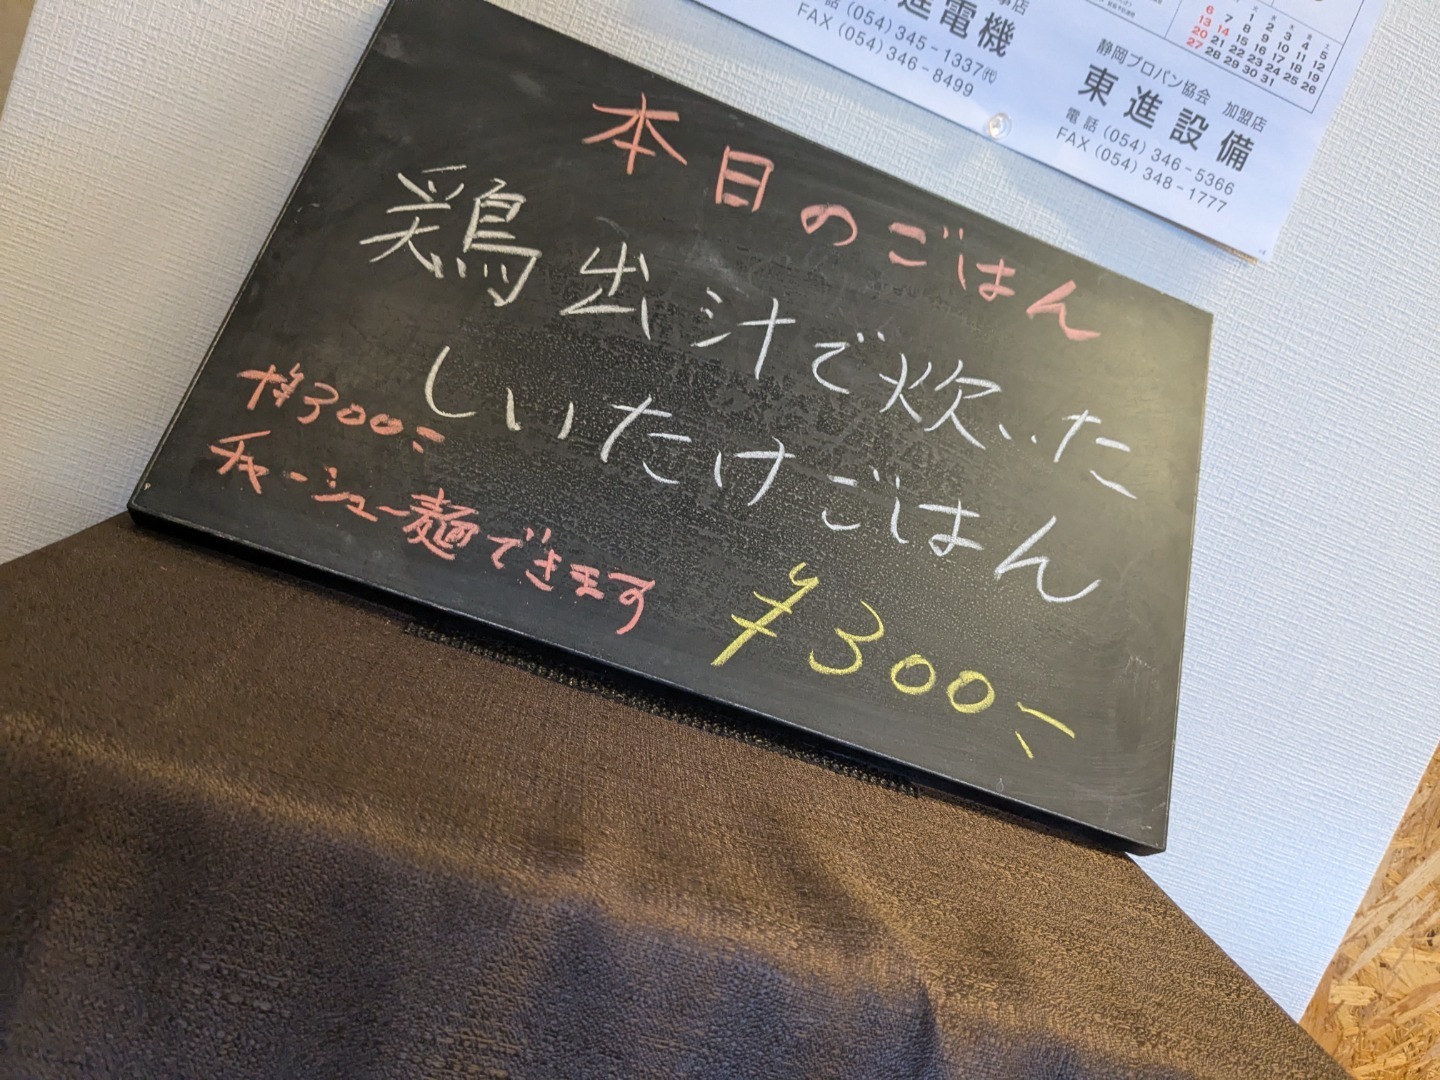 本日のごはん
鶏出汁で炊いた
しいたけごはん
¥300-
+¥300-
チャーシュー麺できます
進電機
(054) 345-1337㈹
FAX (054) 346-8499
静岡プロパン協会 加盟店
東進設備
電話 (054) 346-5366
FAX (054) 348-1777
1 2 3 4 5
6 7 8 9 10 11 12
13 14 15 16 17 18 19
20 21 22 23 24 25 26
27 28 29 30 31